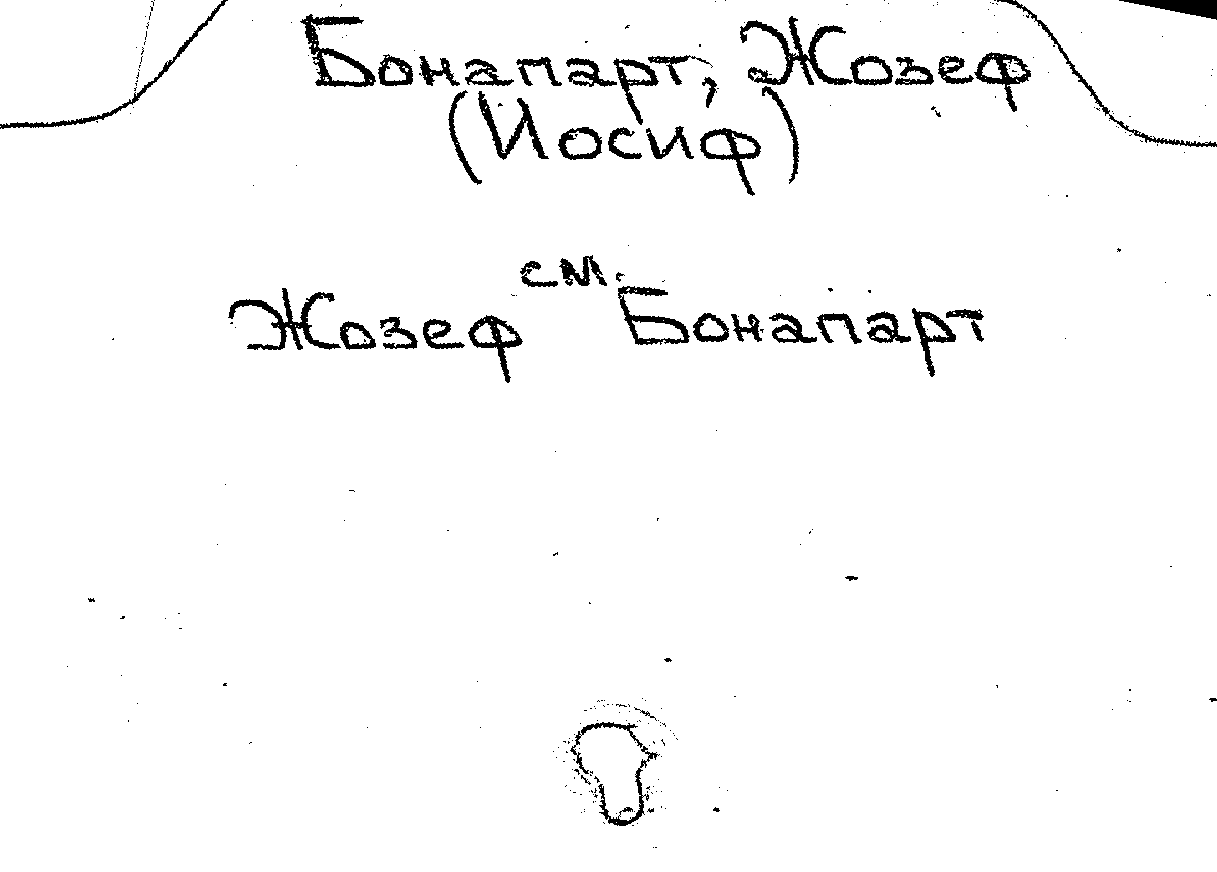 Бонапарт, Жозеф
(Иосиф)
см.
Жозеф Бонапарт